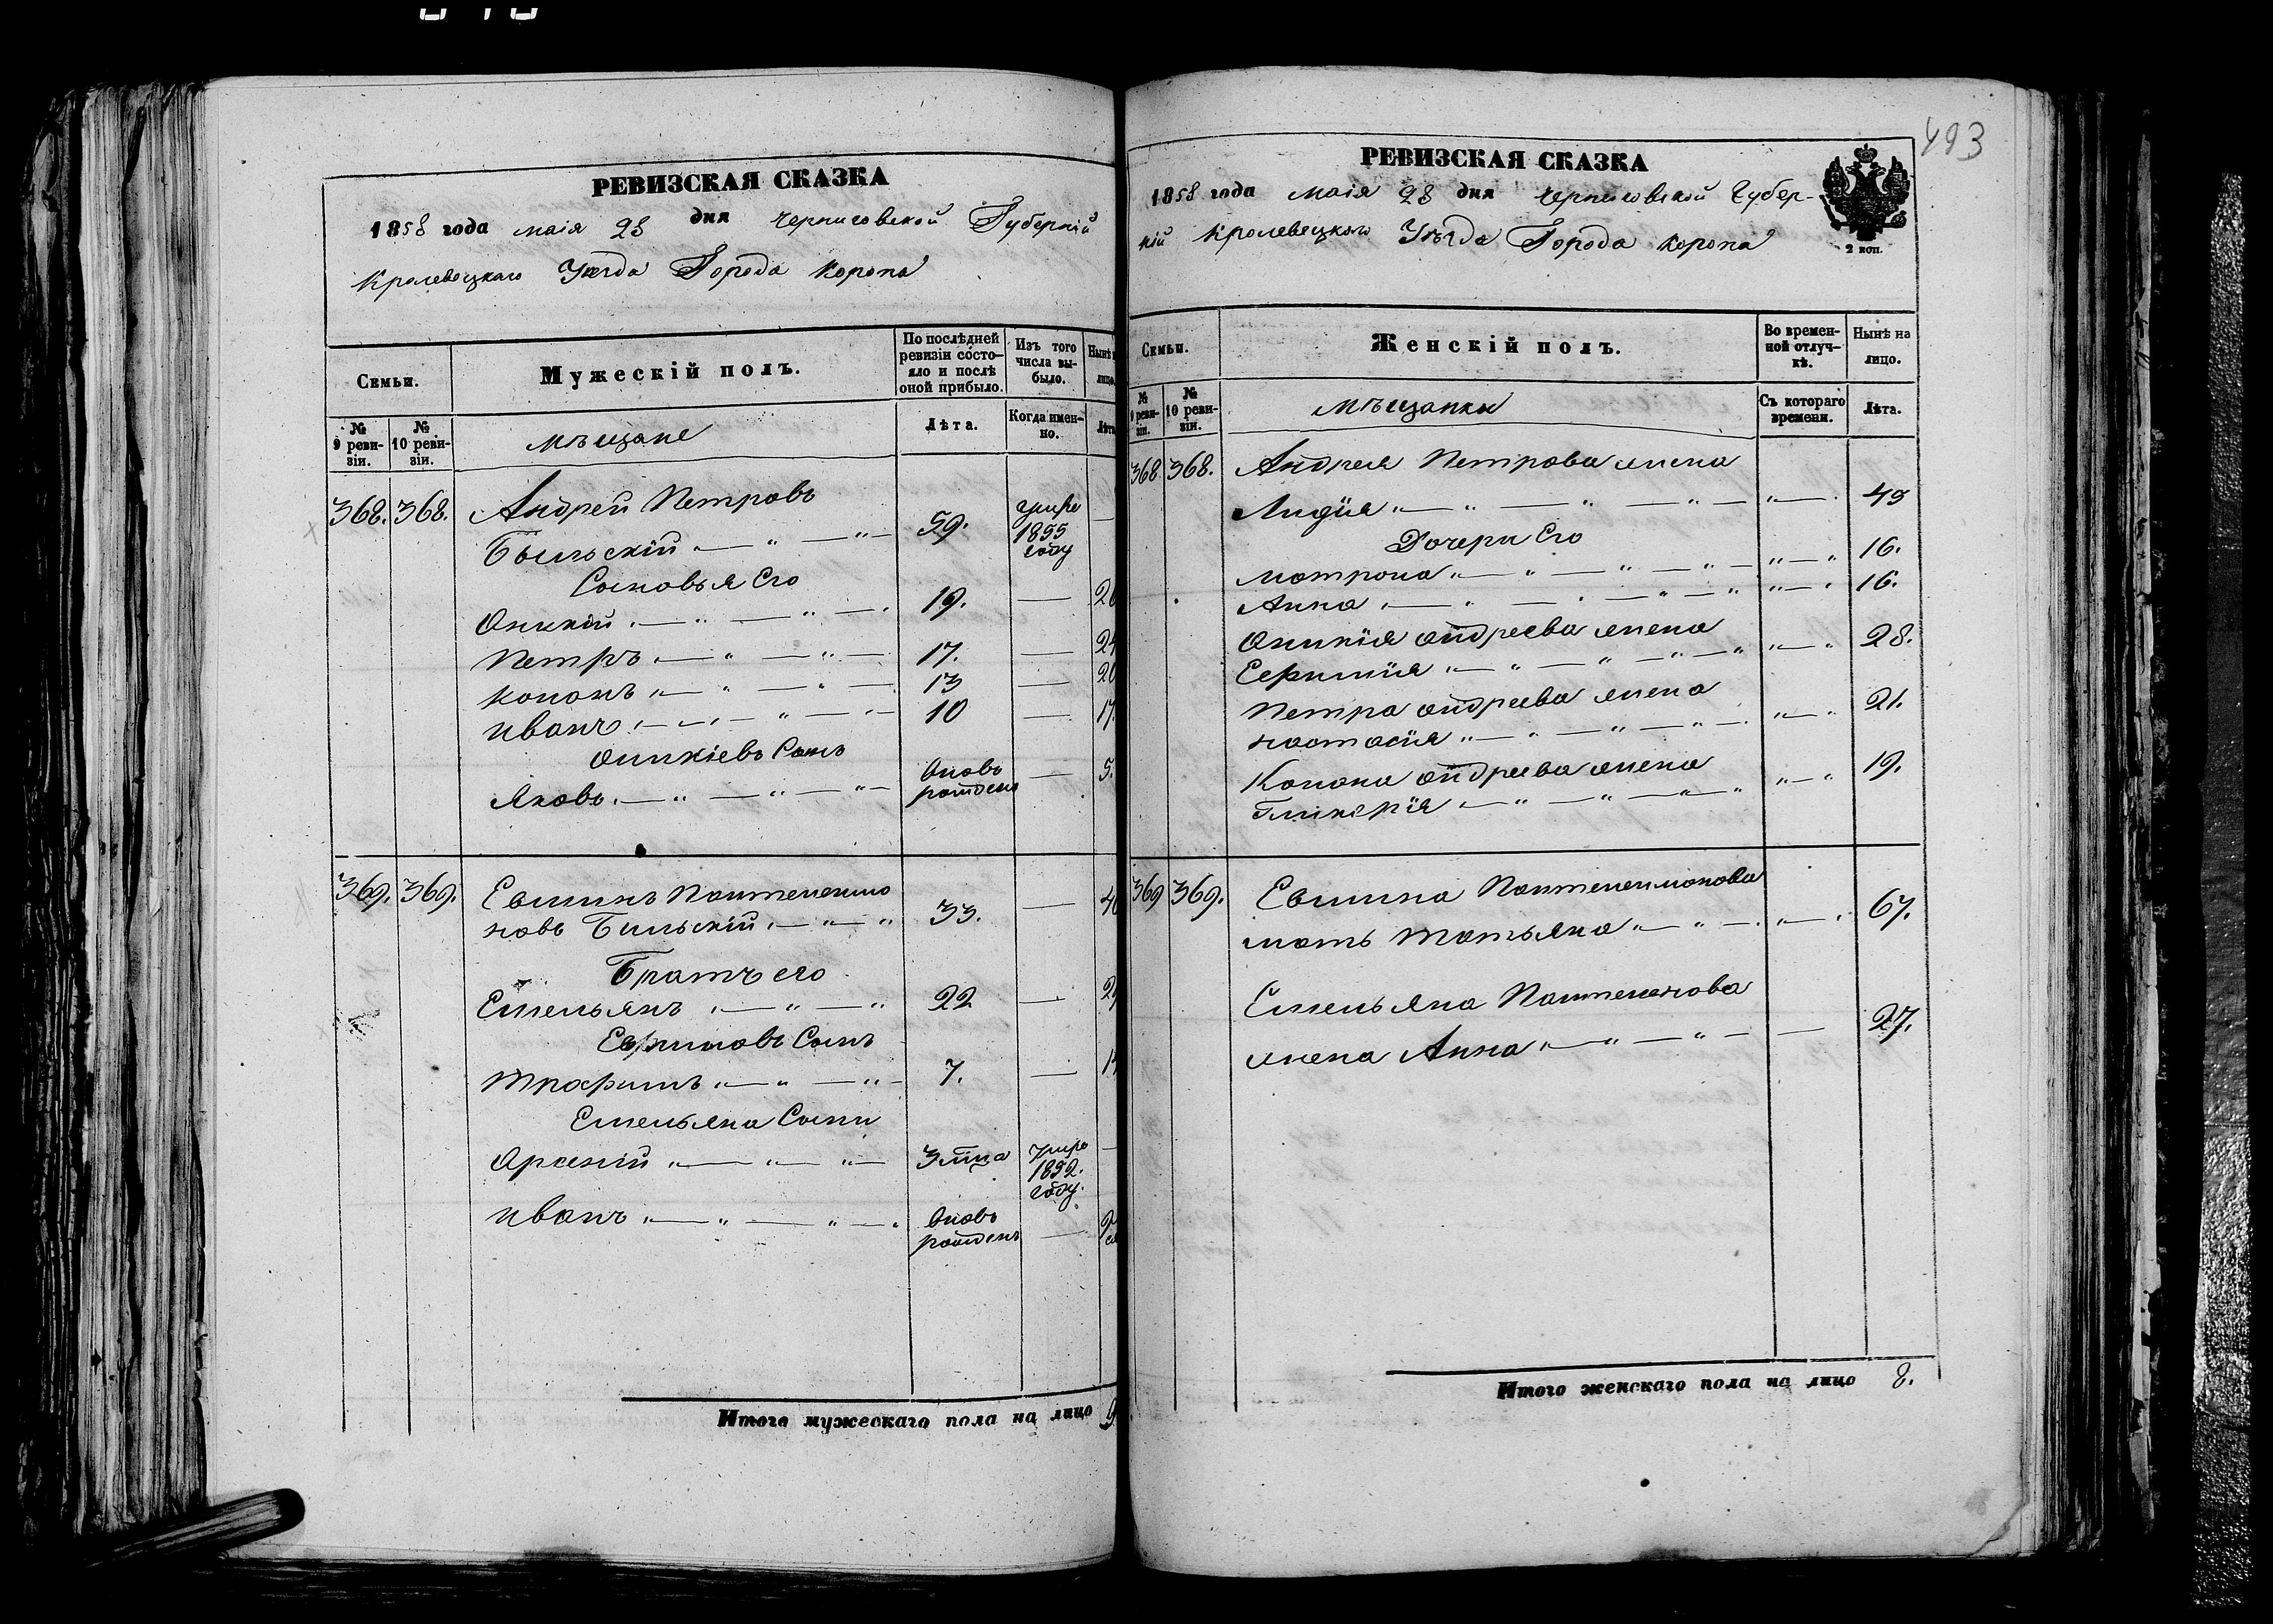 493
РЕВИЗСКАЯ СКАЗКА
1858 года маія 23 дня Черниговской Губерніи
Кролевецкаго Уезда Города Коропа
Семьи.
Мужескій полъ.
По послѣдней ревизіи состояло и послѣ оной прибыло.
Изъ того числа выбыло.
Нынѣ
лицо
№ 9 ревизіи.
№ 10 ревизіи.
мѣщане
Лѣта.
Когда именно.
Лѣта
368. 368. Андрей Петровъ
Бѣльскій 59. умре 1855 году
Сыновья Его
Оникій 19. — 2
Петръ 17. — 24
Кононъ 13 — 20
Иванъ 10 — 17.
Оникіевъ Сынъ
Яковъ вновь рожденъ — 5.
369. 369. Евтинъ Пантелеимо
новъ Бильскій 33. — 40
Братъ его
Емельянъ 22 — 29
Сынъ
Трофимъ 7. — 14
Емельяна Сыны
Арсеній 3 мца умре 1852. году.
Иванъ вновь рожденъ —
Итого мужескаго пола на лицо 9
РЕВИЗСКАЯ СКАЗКА
1858 года маія 23 дня Черниговской Губер-
ніи Кролевецкого Уѣзда Города Коропа
2 коп.
Семьи.
Женскій полъ.
Во временной отлучкѣ.
Нынѣ на лицо.
№ 9 ревизіи.
№ 10 ревизіи.
мѣщанки
Съ котораго времени.
Лѣта.
368 368. Андрея Петрова жена
Лидія 49
Дочери Его
Матрона 16.
Анна 16.
Оникія андреева жена
28.
Петра андреева жена
Настасія 21.
Конона андреева жена
Гликерія 19.
369 369. Пантелеимонова
мать Татьяна 67.
Емельяна Пантеленова
жена Анна — 27.
Итого женскаго пола на лицо 8.